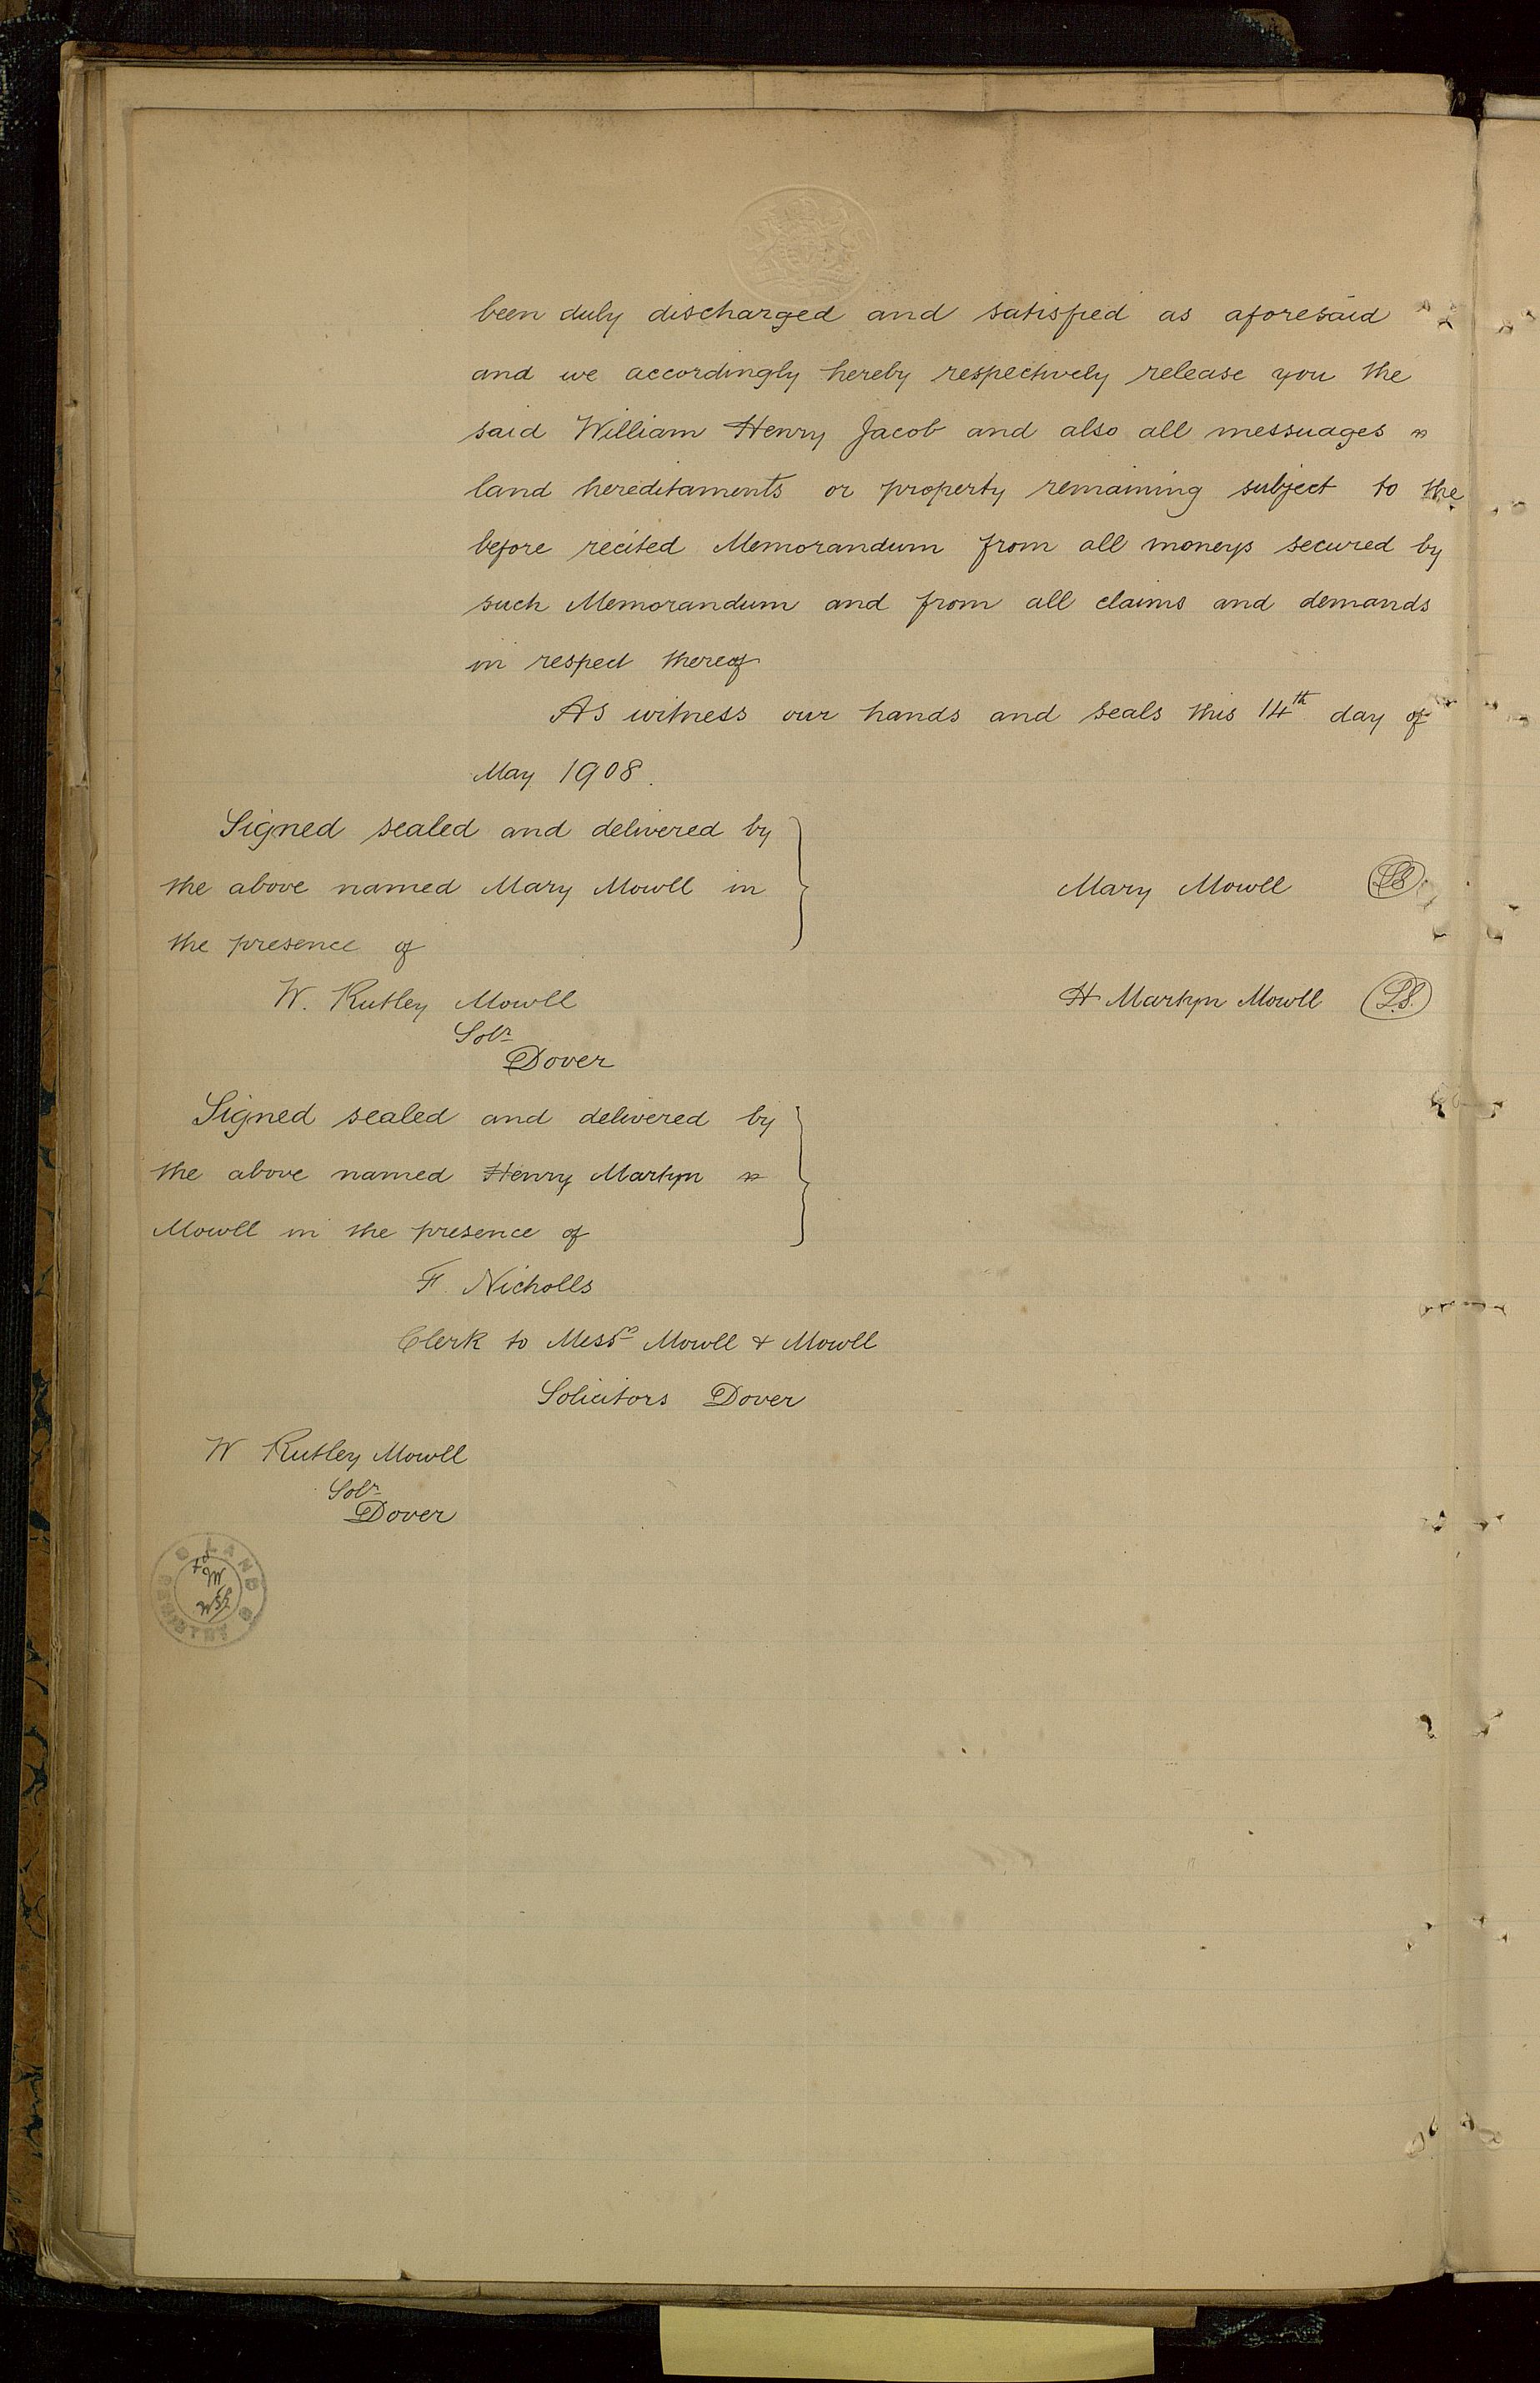 been duly discharged and satisfied as aforesaid
and we accordingly hereby respectively release you the
said William Henry Jacob and also all messuages
land hereditaments or property remaining subject to the
before recited Memorandum from all moneys secured by
such Memorandum and from all claims and demands
in respect thereof
As witness our hands and seals this 14th day of
May 1908.
Signed sealed and delivered by
the above named Mary Mowll in
the presence of
Mary Mowll LS
W. Rutley Mowll
Solr
Dover
H Martyn Mowll L.S.
Signed sealed and delivered by
the above named Henry Martyn
Mowll in the presence of
F. Nicholls
Clerk to Messrs Mowll & Mowll
Solicitors Dover
W Rutley Mowll
Solr
Dover
LAND REGISTRY